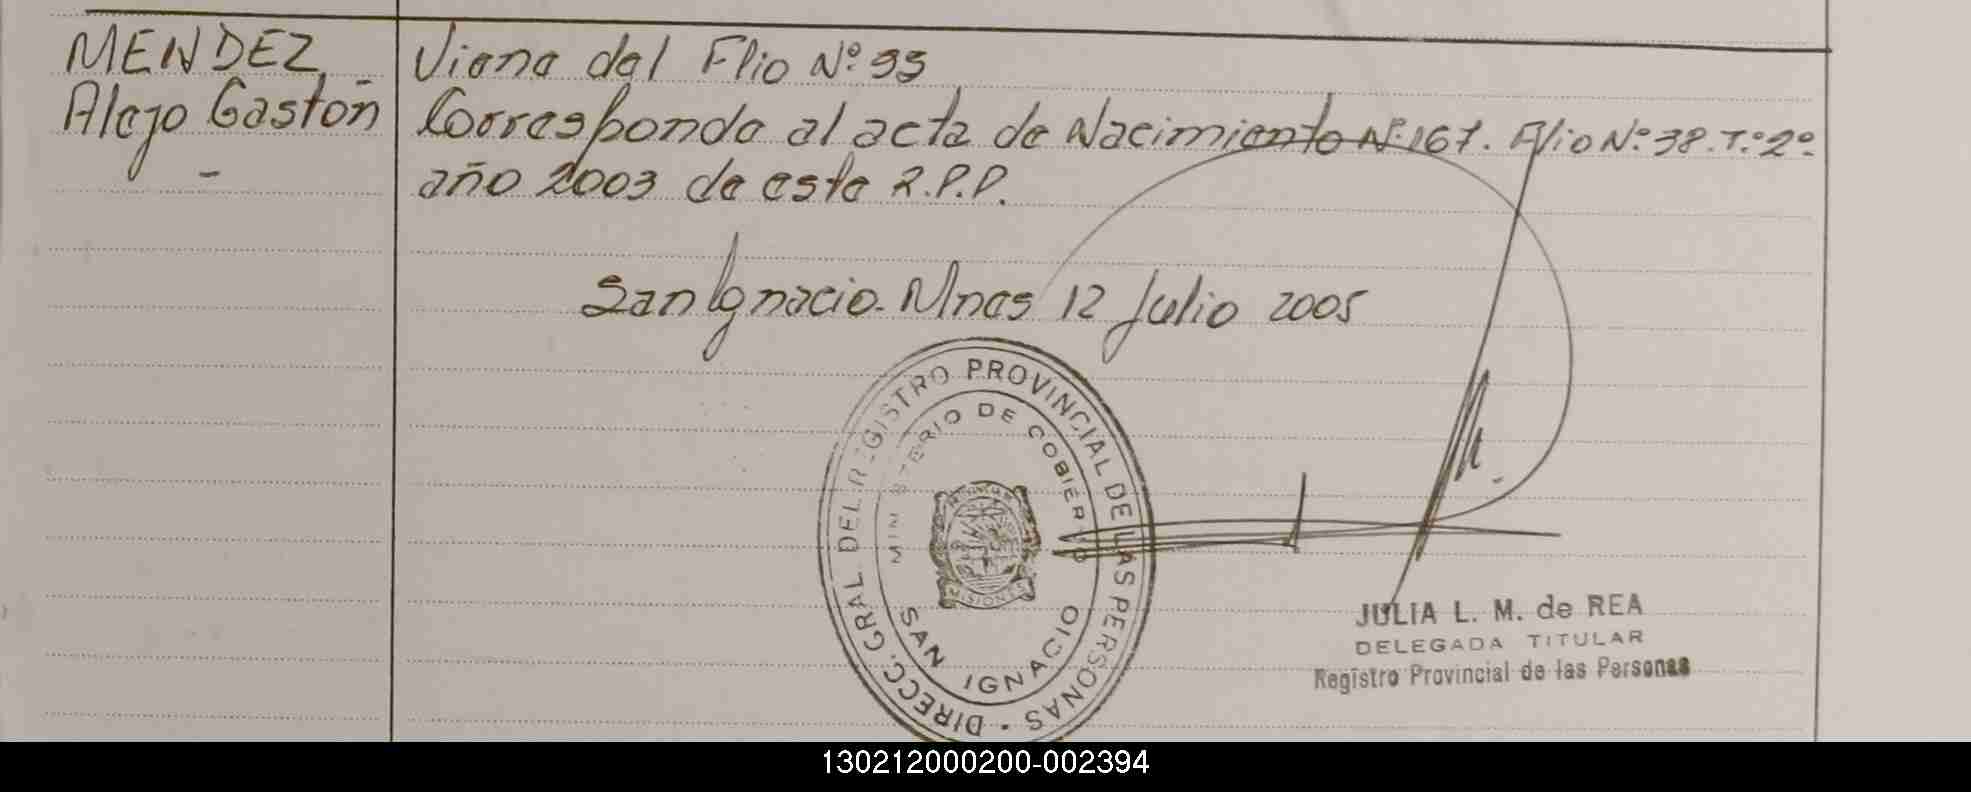 MENDEZ, -
Alejo Gastón
-
Viene del Flio Nº 33
Corresponde al acta de Nacimiento Nº 167. Flio Nº 38. T.º 2º
año 2003 de este R.P.P.
San Ignacio. Mnes 12 Julio 2005
DIRECC. GRAL. DEL REGISTRO PROVINCIAL DE LAS PERSONAS
MINISTERIO DE GOBIERNO
MISIONES
SAN IGNACIO
JULIA L. M. de REA
DELEGADA TITULAR
Registro Provincial de las Personas
130212000200-002394